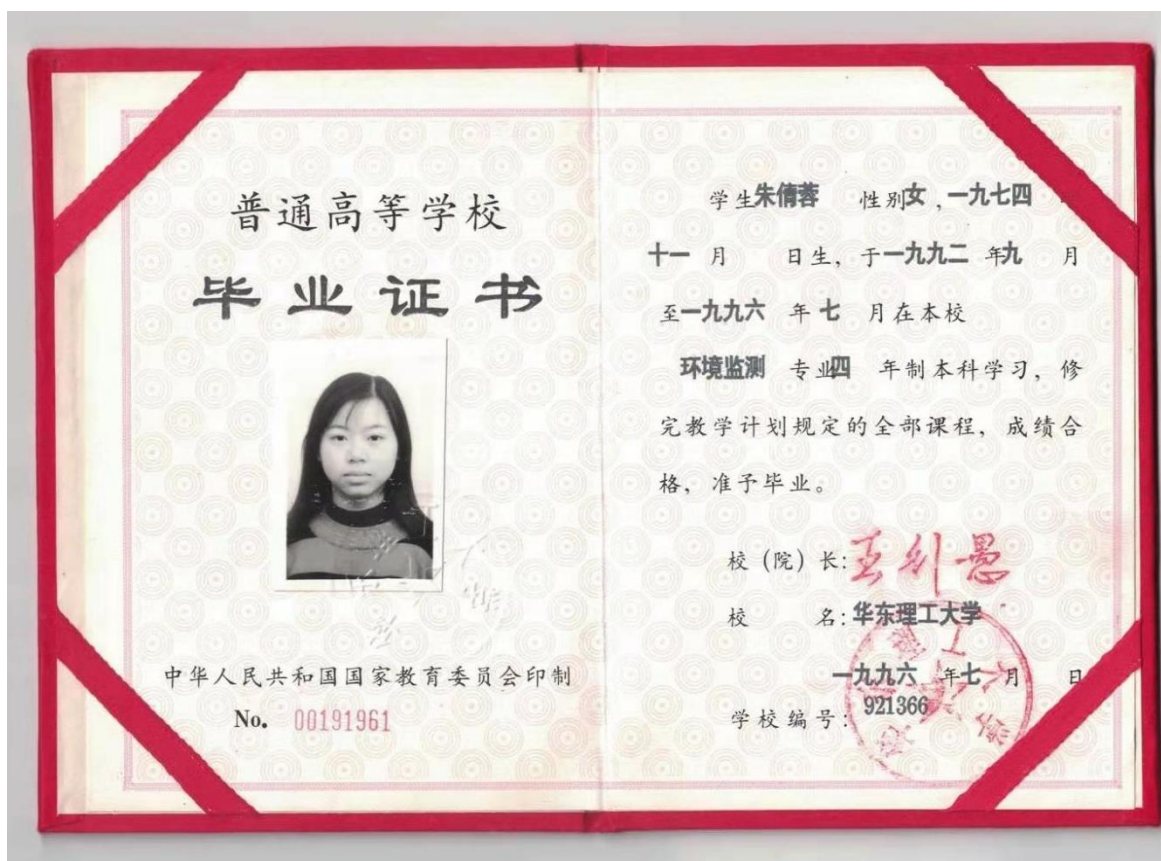 普通高等学校
毕业证书
中华人民共和国国家教育委员会印制
No. 00191961
学生朱倩蓉 性别女，一九七四
十一 月 日生，于一九九二 年九 月
至一九九六 年 七 月在本校
环境监测 专业四 年制本科学习，修
完教学计划规定的全部课程，成绩合
格，准予毕业。
校（院）长：王行愚
校 名：华东理工大学
一九九六 年七 月 日
学校编号：921366